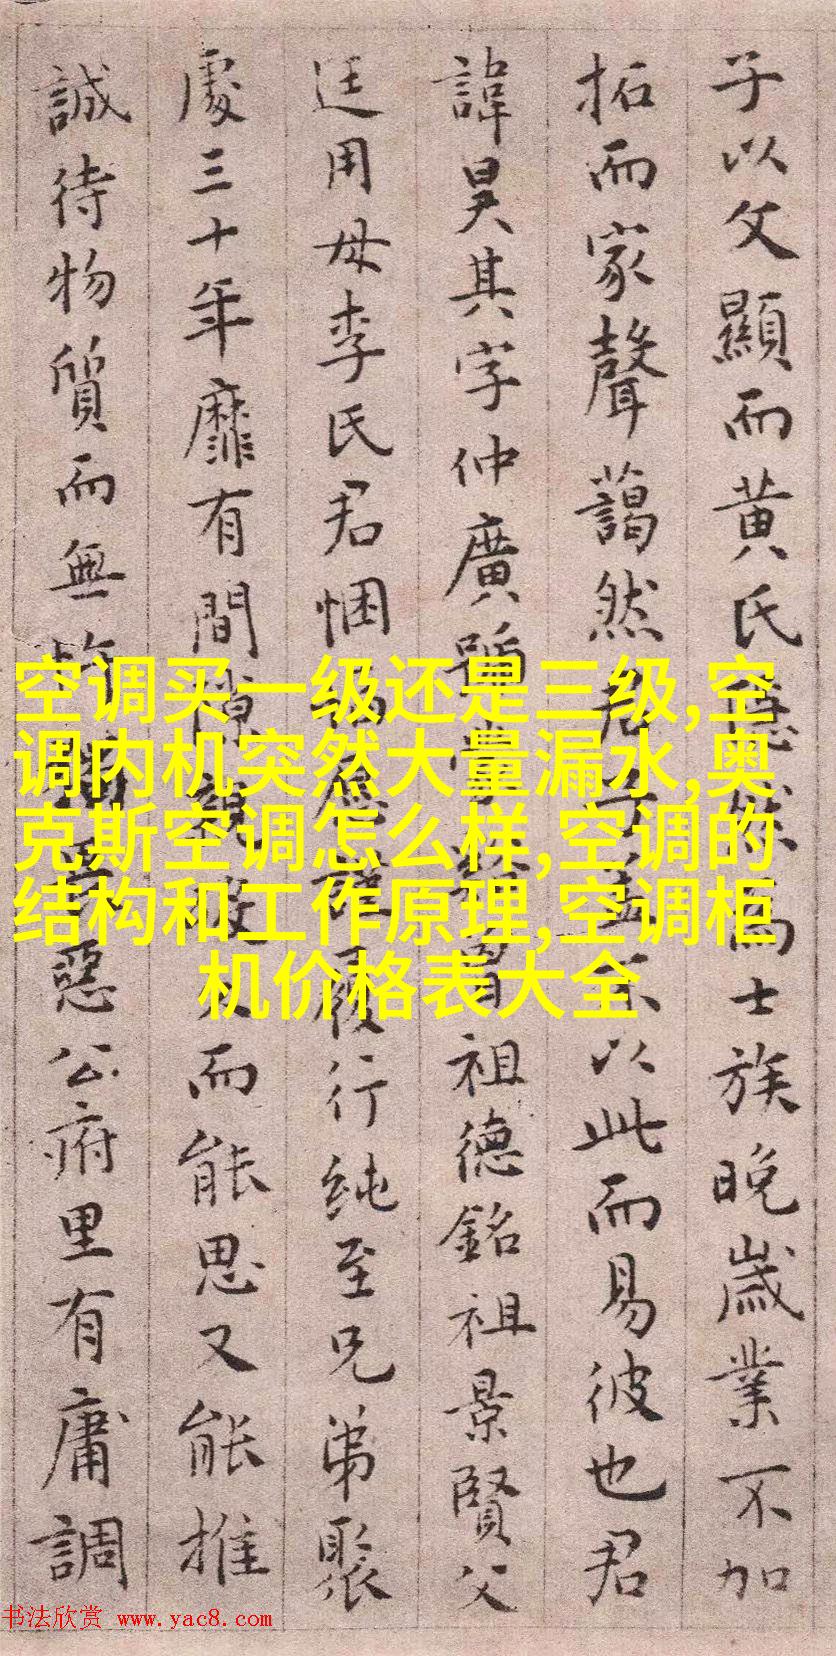 子以父顯而黄氏為士族晚歳業不加
拓而家聲藹然不以此而易彼也君
諱昊其字仲廣祖德銘祖景賢父
廷用母李氏君悃履行純至兄弟聚
處三十年靡有間而能思又能推
誠待物質而無惡公府里有庸調
空调买一级还是三级,空
调内机突然大量漏水,奥
克斯空调怎么样,空调的
结构和工作原理,空调柜
机价格表大全
书法欣赏 www.yac8.com